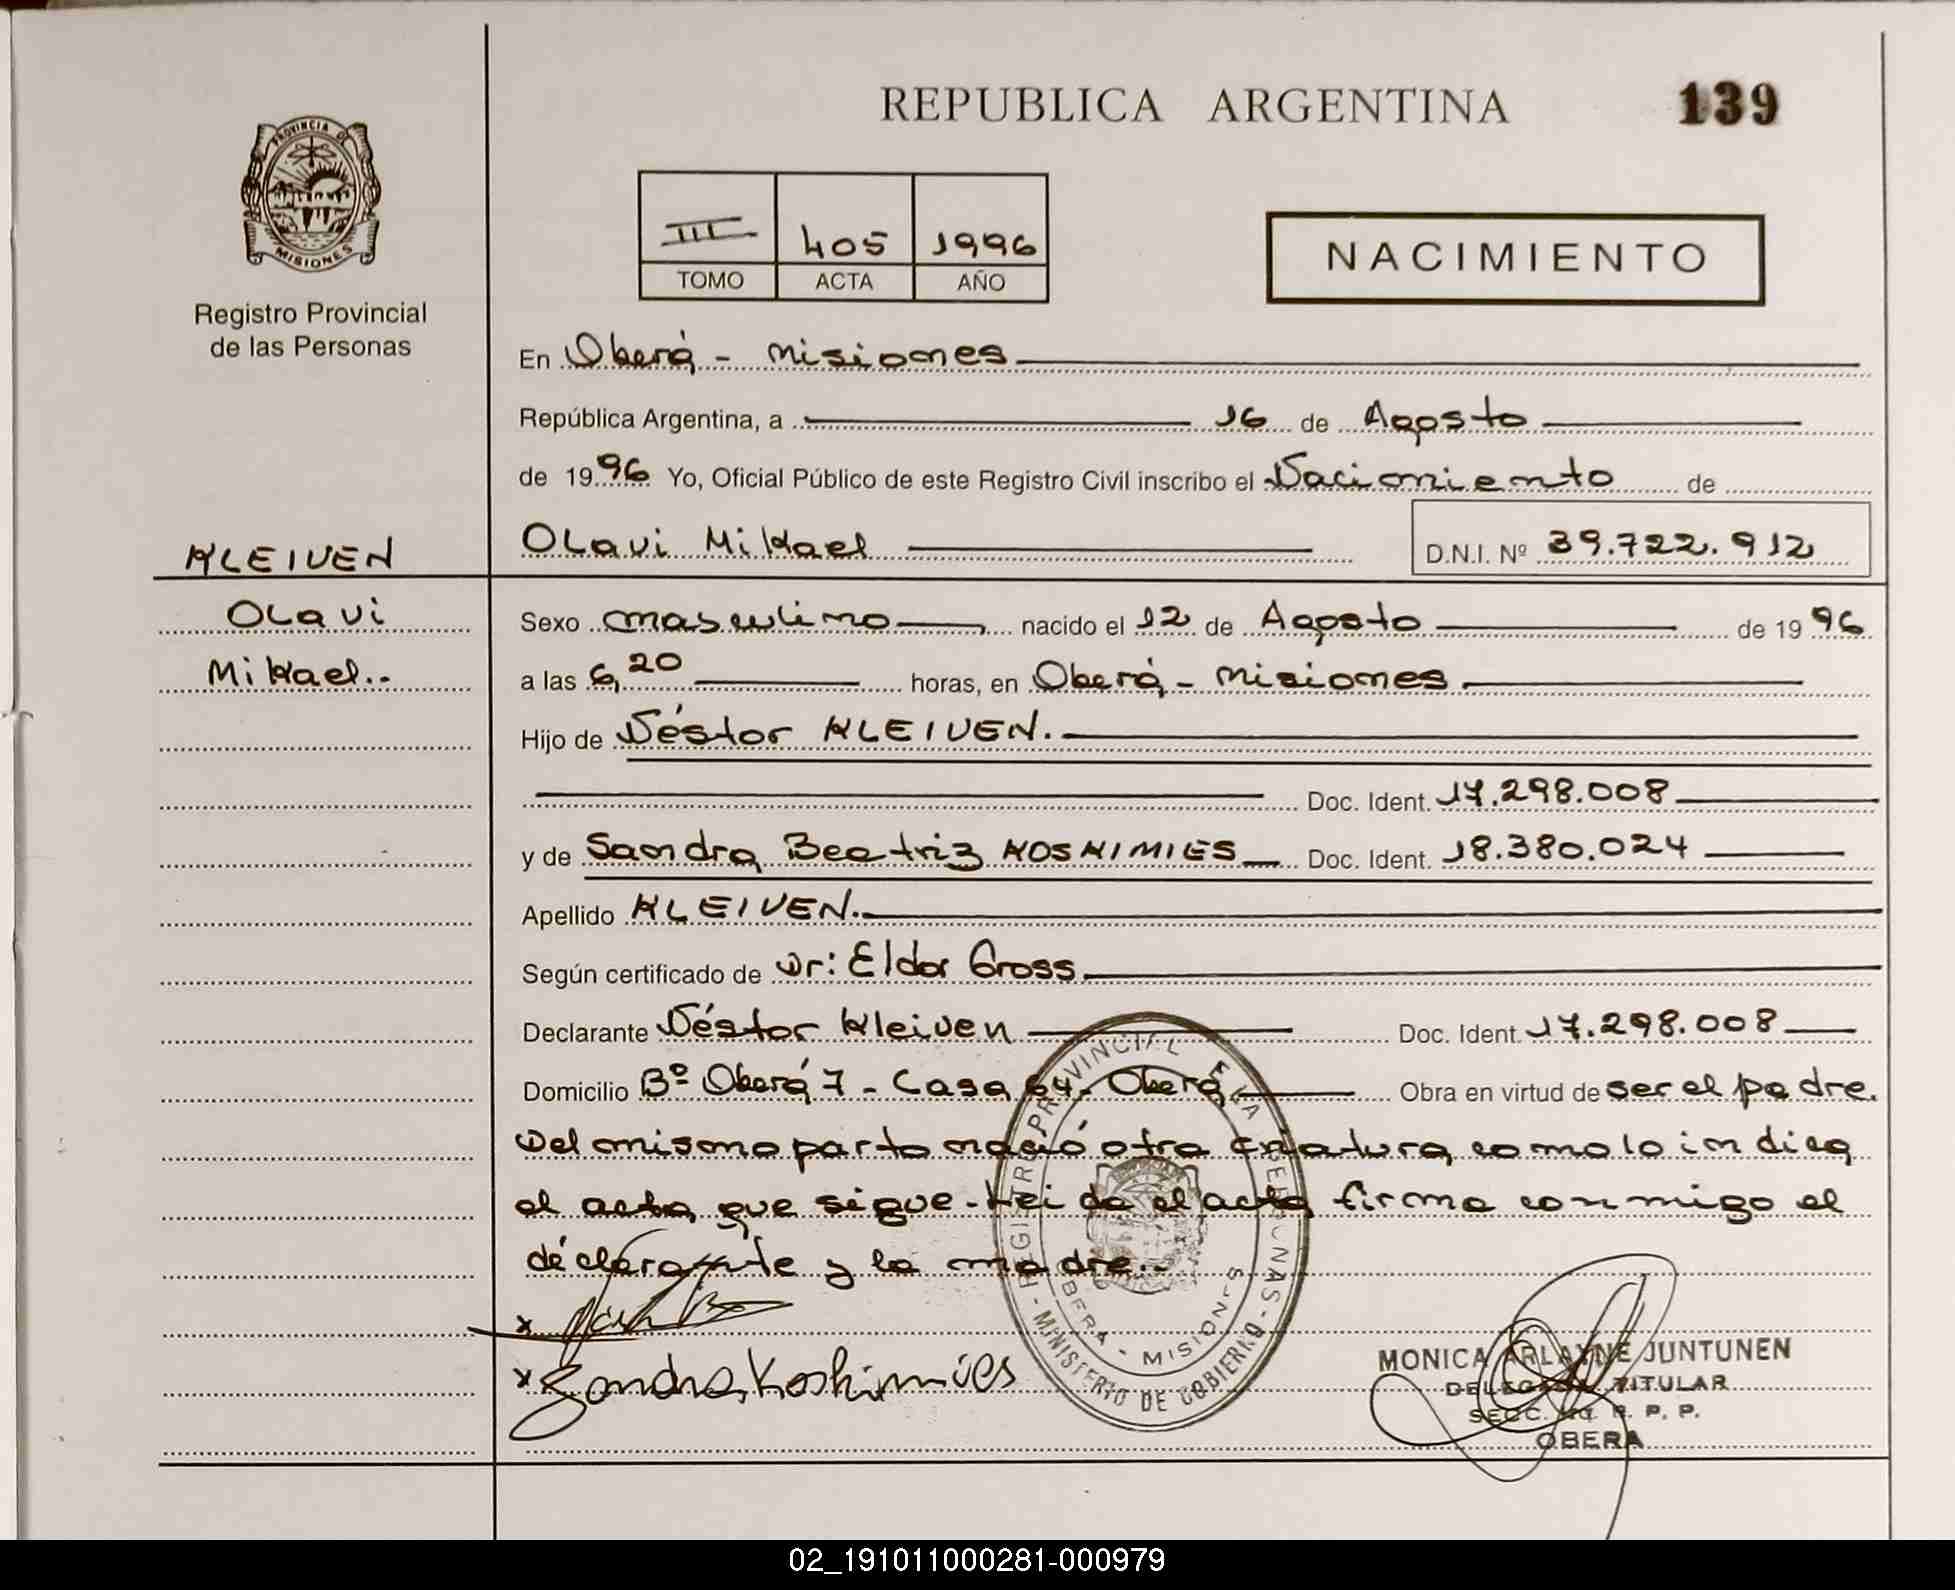 REPUBLICA ARGENTINA
139
PROVINCIA DE
MISIONES
Registro Provincial
de las Personas
III 405 1996
TOMO ACTA AÑO
NACIMIENTO
En Oberá - Misiones
República Argentina, a 16 de Agosto
de 1996 Yo, Oficial Público de este Registro Civil inscribo el Nacimiento de
KLEIVEN
Olavi Mikael D.N.I. Nº 39.722.912
Olavi
Mikael..
Sexo masculino nacido el 12 de Agosto de 1996
a las 6,20 horas, en Oberá - Misiones
Hijo de Néstor KLEIVEN.
Doc. Ident. 17.298.008
y de Sandra Beatriz KOSKIMIES Doc. Ident. 18.380.024
Apellido KLEIVEN.
Según certificado de Dr: Eldor Gross
Declarante Néstor Kleiven Doc. Ident. 17.298.008
Domicilio Bº Oberá 7 - Casa 64 - Oberá Obra en virtud de ser el padre.
Del mismo parto nació otra criatura como lo indica
el acta que sigue. Leida el acta firma conmigo el
declarante y la madre..
x
x Sandra Koskimies
REGISTRO PROVINCIAL DE LAS PERSONAS - MINISTERIO DE GOBIERNO -
OBERA - MISIONES
MONICA ARLAYNE JUNTUNEN
DELEGADA TITULAR
SECC. R. P. P.
OBERA
02_191011000281-000979